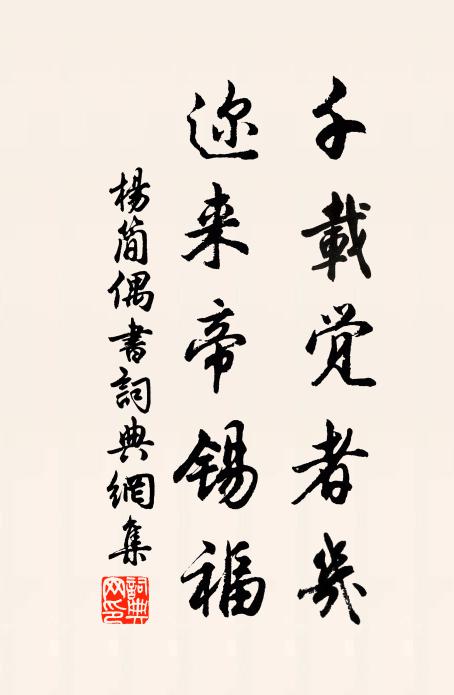 千載覺者幾
迩来帝锡福
楊简偶書詞典網集
詞典网印